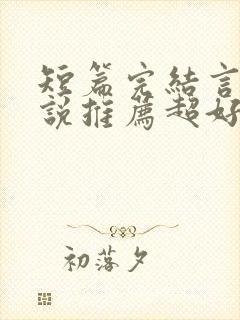 短篇完結言
說推薦超好
初落夕